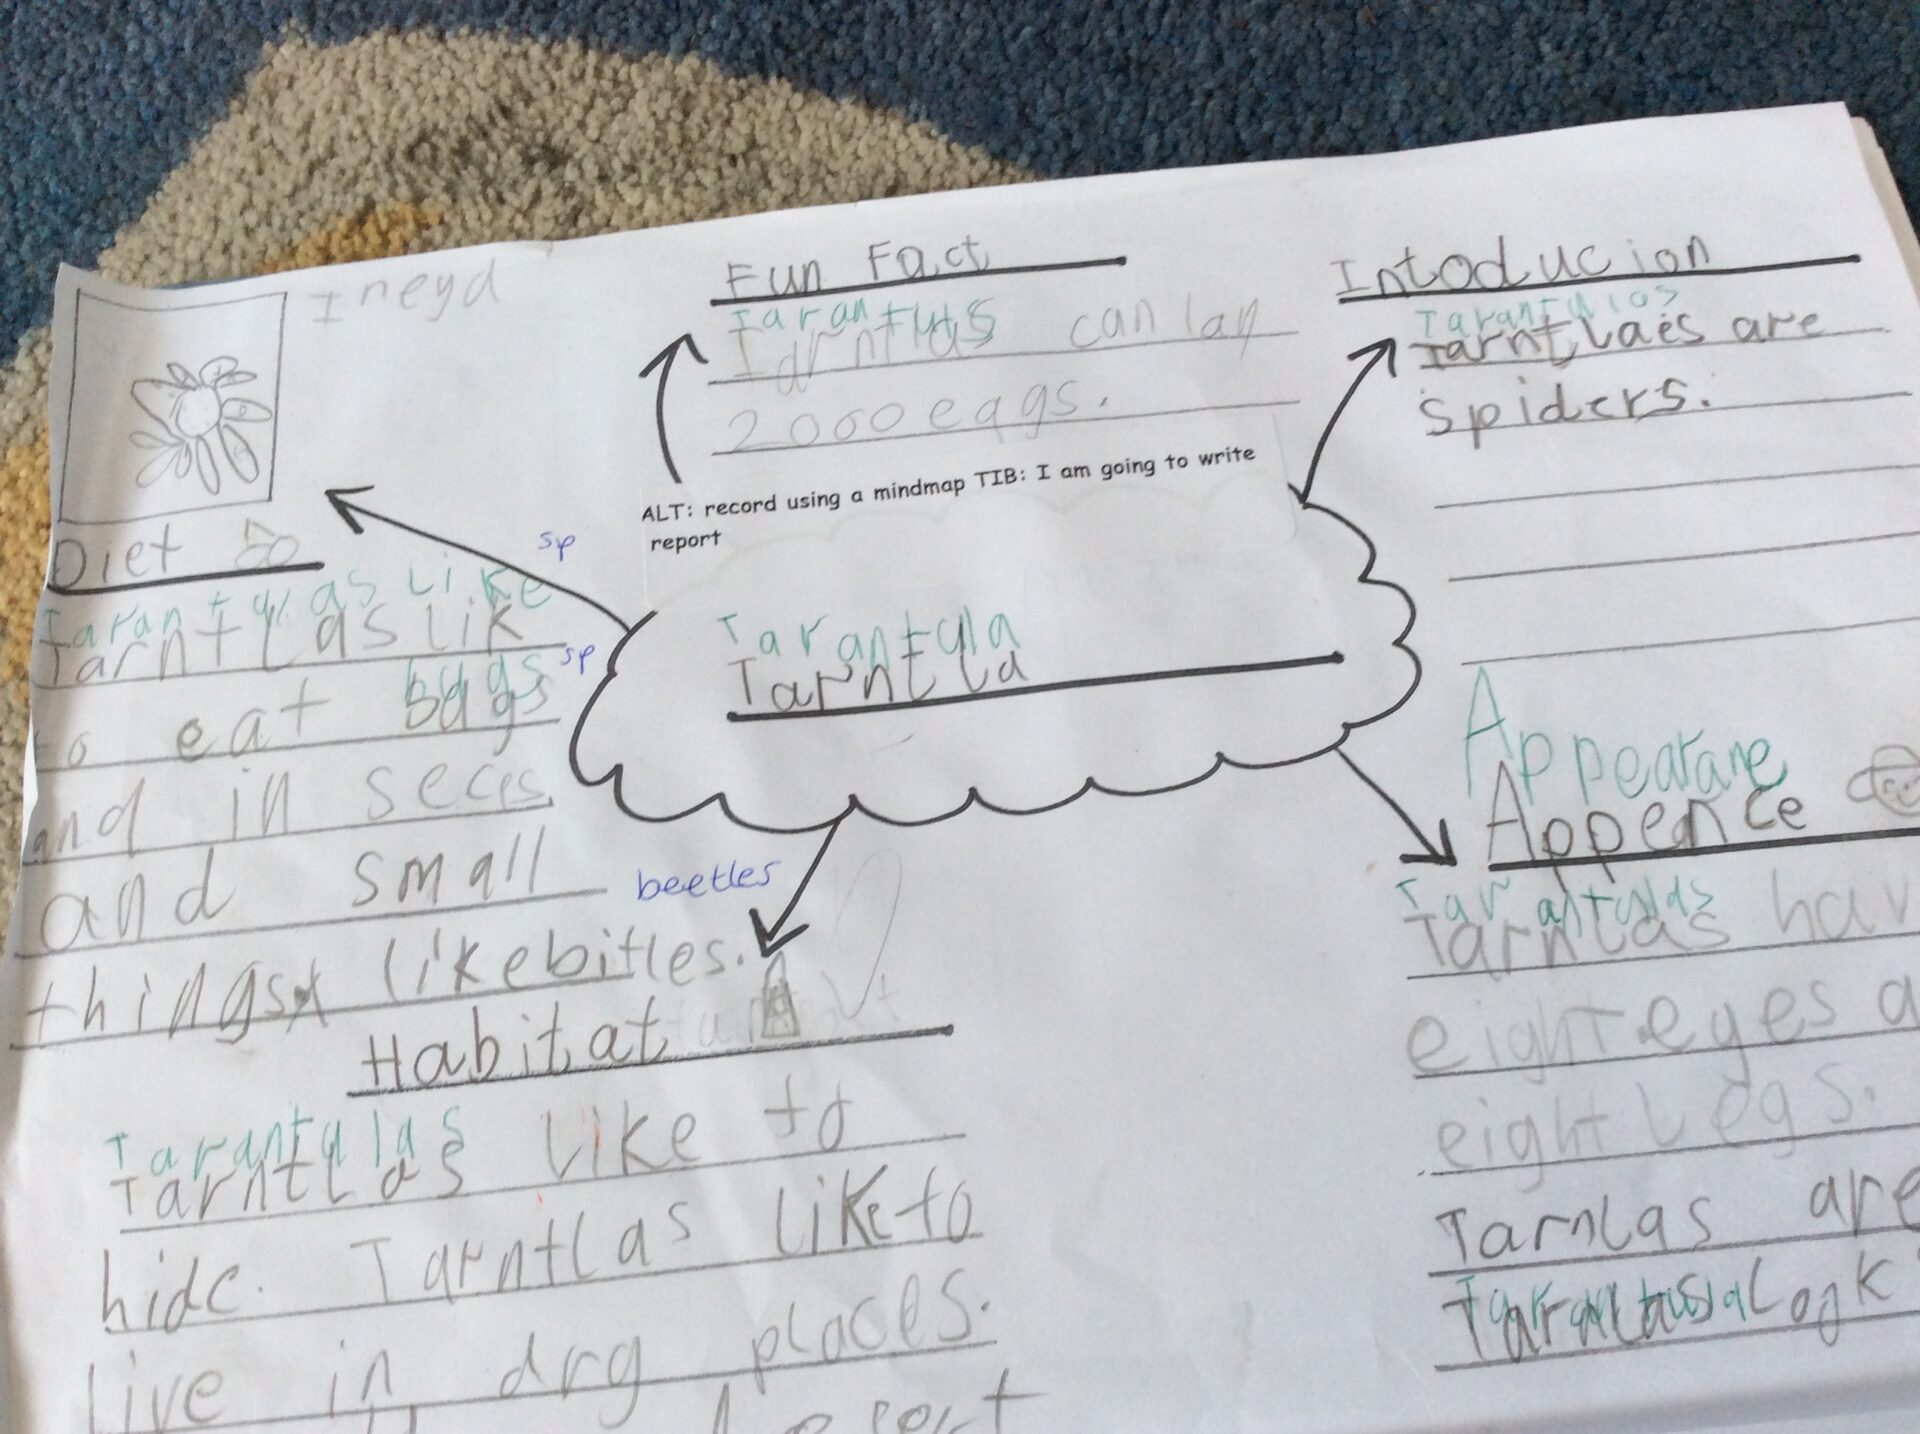 Fun Fact
Tarantulas
Tarntlas can lay
2000 eggs.
Intoducion
Tarantulas
Tarntlaes are
spiders.
ALT: record using a mindmap TIB: I am going to write
report
Tarantula
Tarntla
sp
sp
Diet
Tarantulas like
Tarntlas lik
bugs
to eat bags
and in seces
and small
beetles
things like bitles.
Habitat
Tarantulas
Tarntlas like to
hide. Tarntlas like to
live in dry places.
Appearane
Appence
Tarantulas
Tarntlas hav
eight eyes a
eight legs.
Tarnlas are
look